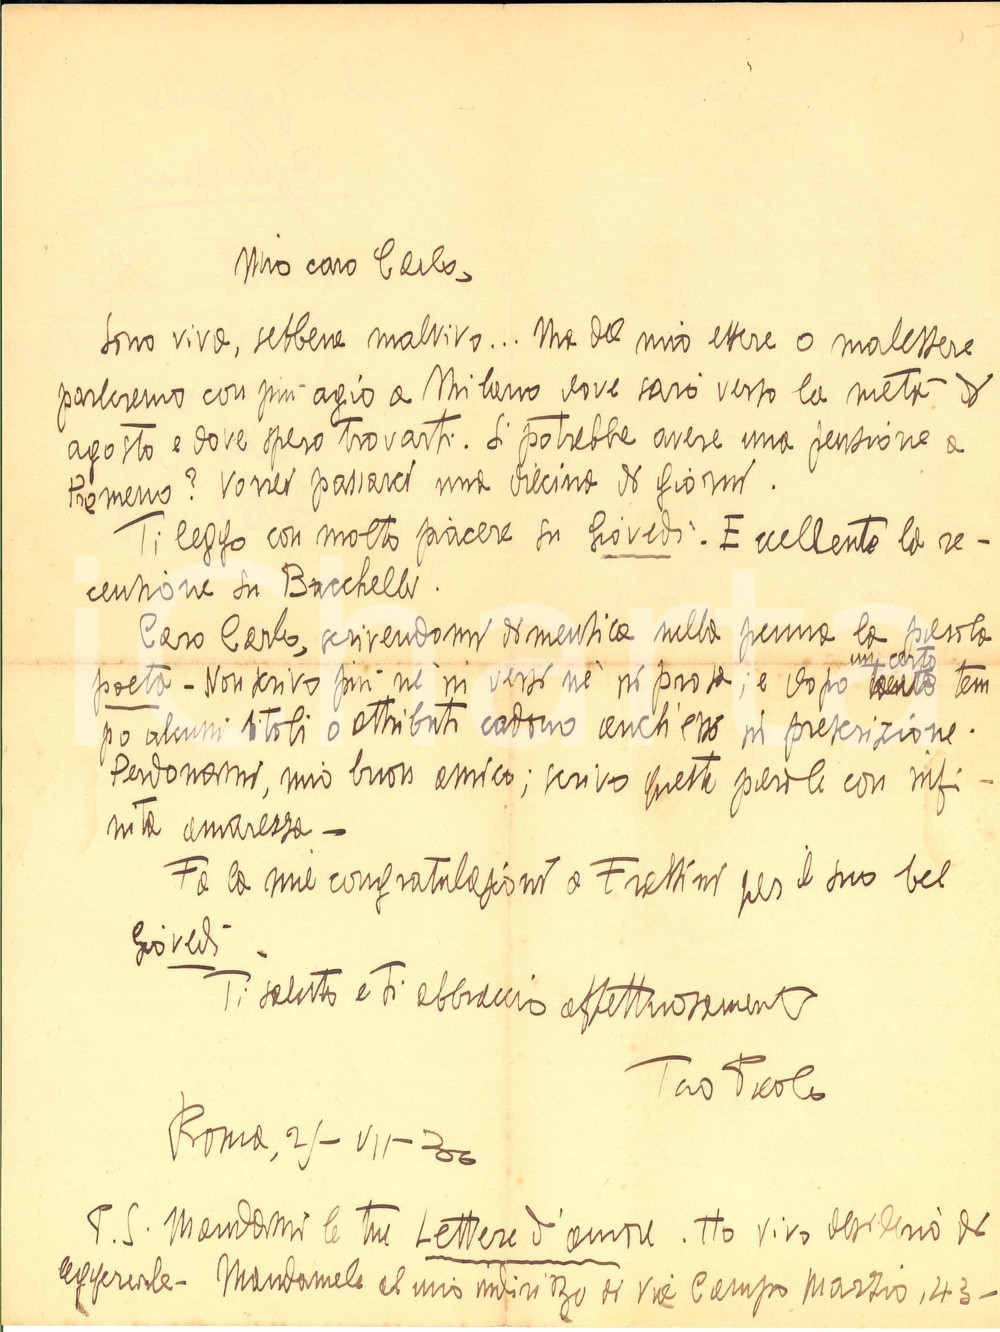 Mio caro Carlo,
Sono vivo, sebbene malvivo... Ma del mio essere o malessere
parleremo con più agio a Milano dove sarò verso la metà di
agosto e dove spero trovarti. Si potrebbe avere una pensione a
Romeno? Vorrei passarci una diecina di giorni.
Ti leggo con molto piacere su Giovedì. Eccellente la re-
censione su Bacchelli.
Caro Carlo, scrivendomi dimentica nella penna la parola
poeta - Non scrivo più nè in versi nè in prosa; e dopo un certo tem
po alcuni titoli o attributi cadono anch'essi in prescrizione.
Perdonami, mio buon amico; scrivo queste parole con infi-
nita amarezza -
Fa le mie congratulazioni a Frattini per il suo bel
Giovedì.
Ti saluto e ti abbraccio affettuosamente
Tuo Paolo
Roma, 25 - VII -
P.S. Mandami le tue Lettere d'amore. Ho vivo desiderio di
leggerle - Mandamele al mio indirizzo di Via Campo Marzio, 43 -
iCharta